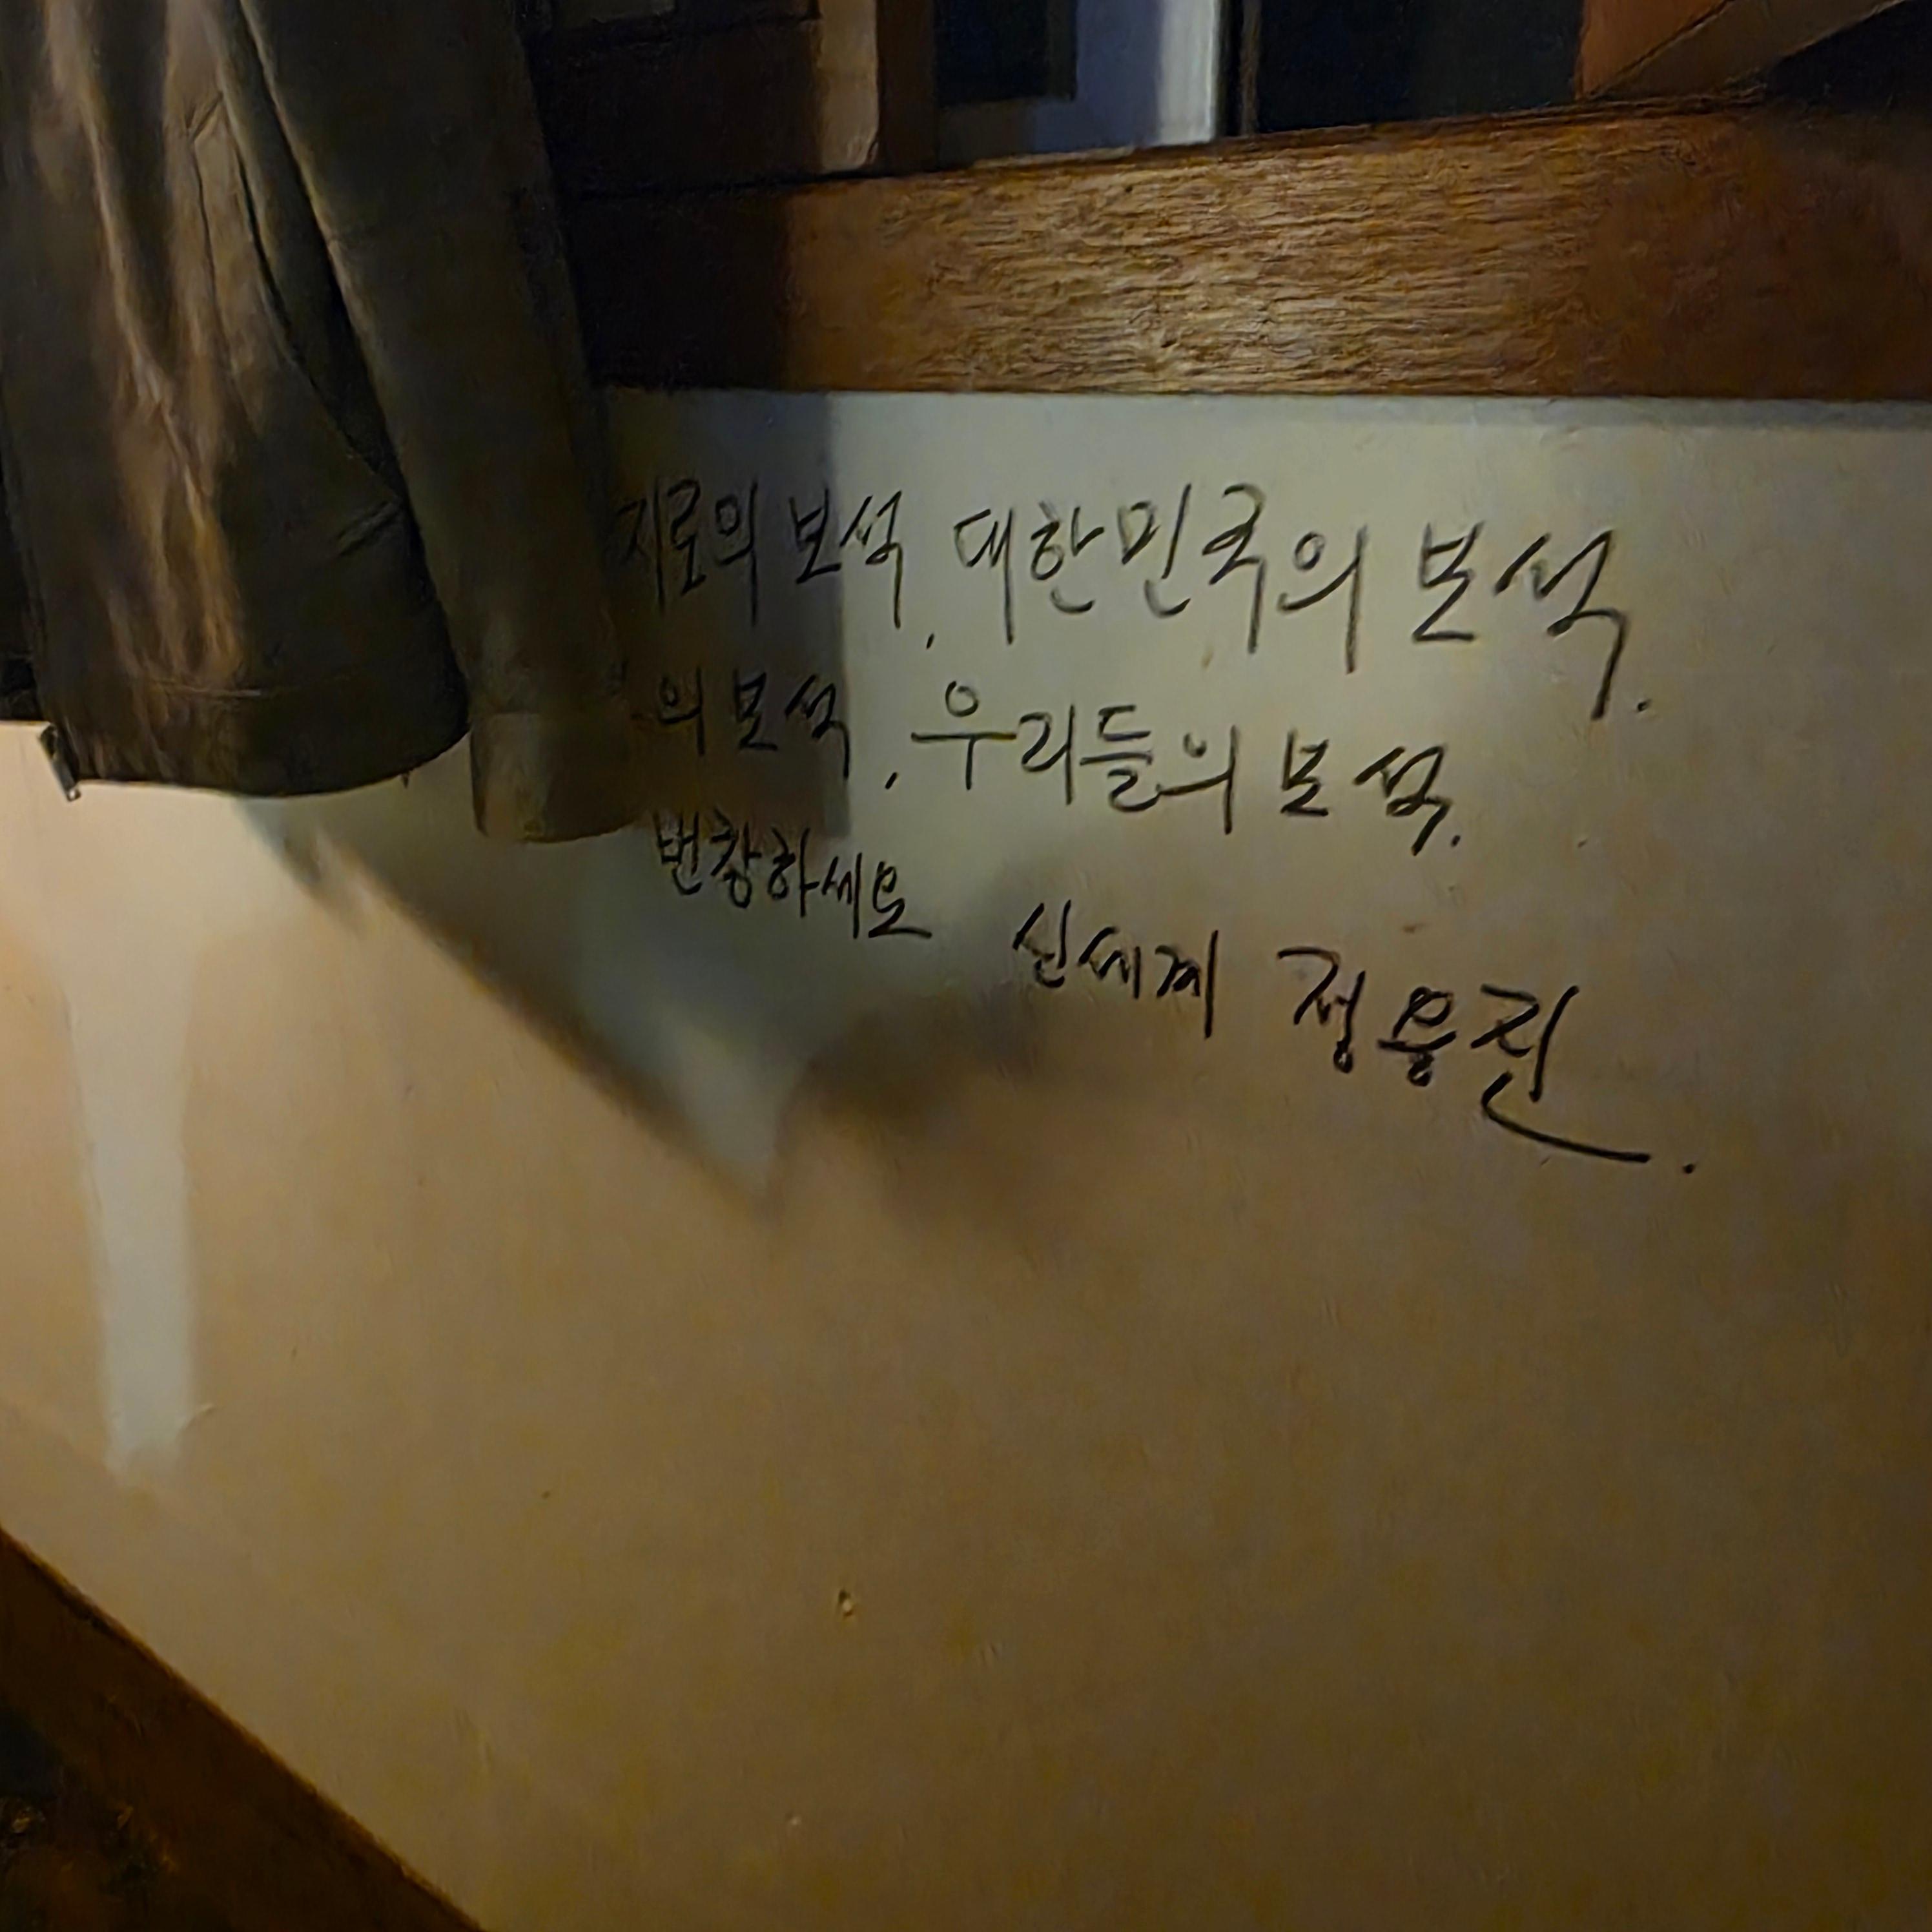 지로의 보석, 대한민국의 보석.
의 보석, 우리들의 보석.
번창하세요
신세계 정용진.